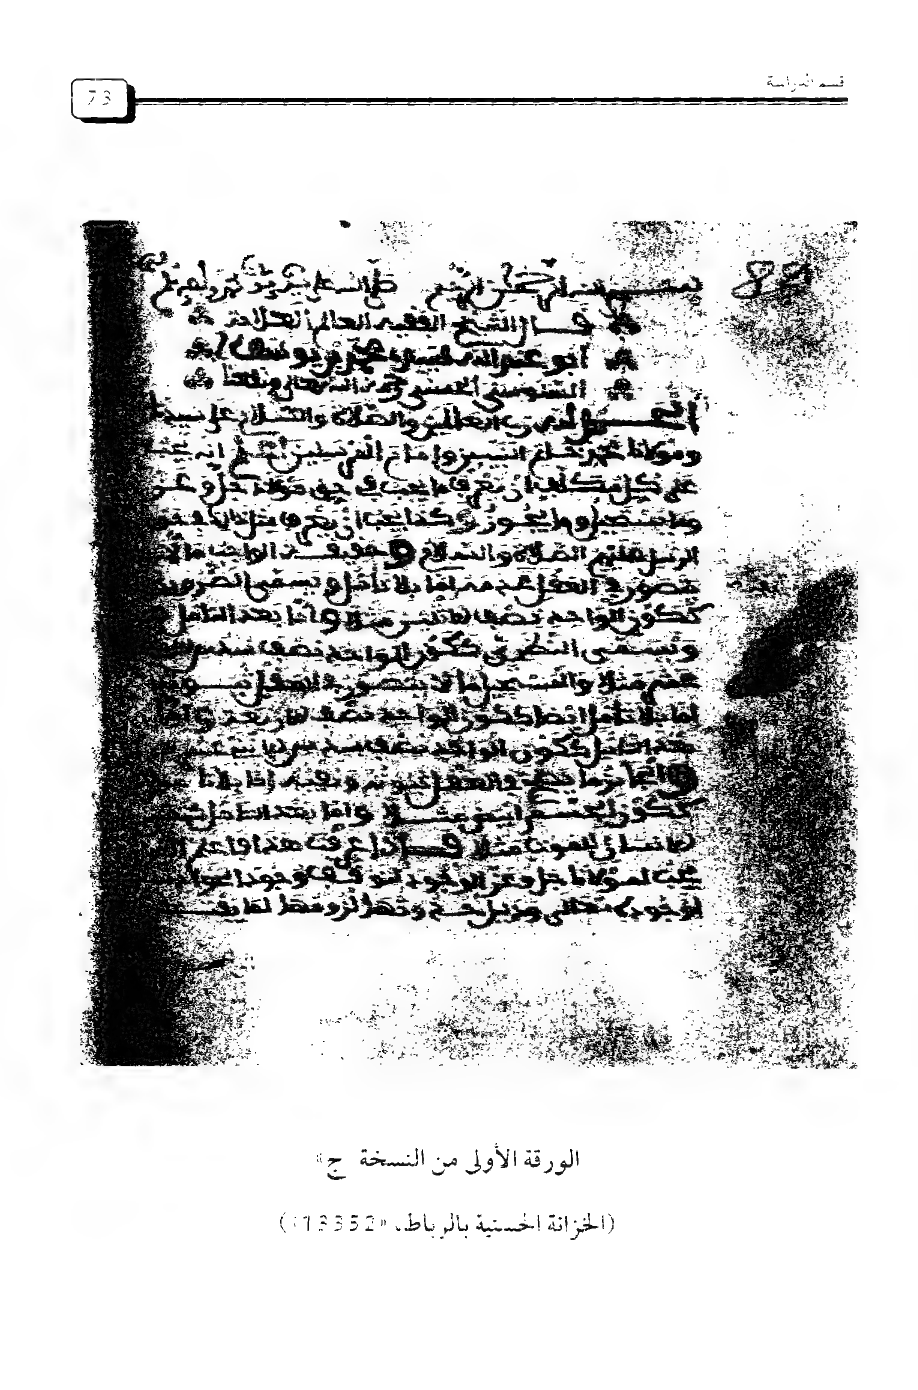 قسم الدراسة
73
88
بسم الله الرحمن الرحيم صلى الله على سيدنا
قال الشيخ الفقيه العالم العلامة
أبو عبد الله محمد بن يوسف
السنوسي الحسني رحمه الله تعالى
الحمد لله رب العالمين والصلاة والسلام على سيدنا
ومولانا محمد خاتم النبيين وإمام المرسلين
على كل مكلف أن يعرف ما يجب في حق مولانا جل وعز
وما يستحيل وما يجوز وكذا يجب أن يعرف مثل ذلك في حق
الرسل عليهم الصلاة والسلام وحقيقة الواجب ما لا
يتصور في العقل عدمه إما بلا تأمل ويسمى الضروري
ككون الواحد نصف الاثنين مثلا وإما بعد التأمل
ويسمى النظري ككون الواحد نصف سدس
عشر مثلا والمستحيل ما لا يتصور في العقل ثبوته
إما بلا تأمل أيضا ككون الواحد نصف الأربعة وإما
بعد التأمل ككون الواحد
والجائز ما يصح في العقل ثبوته ونفيه إما بلا تأمل
ككون الجسم أبيض مثلا وإما بعد التأمل
الإنسان الموت مثلا فإذا عرفت هذا فاعلم
يجب لمولانا جل وعز الوجود
الورقة الأولى من النسخة ج»
(الخزانة الحسنية بالرباط، «13352»)